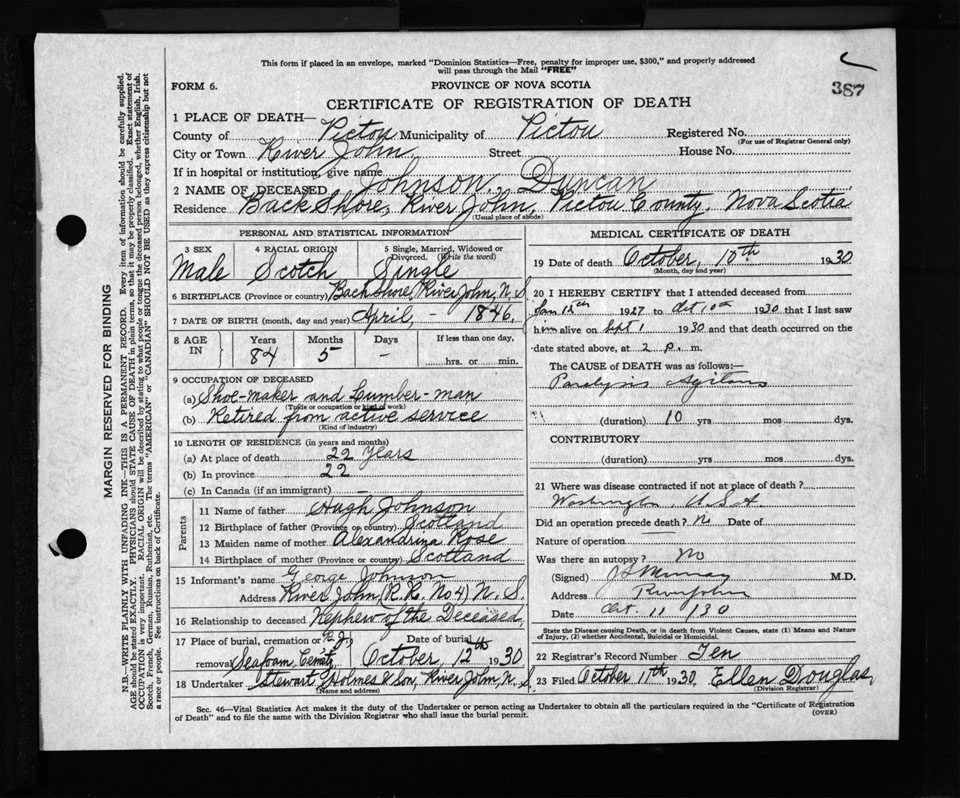 This form if placed in an envelope, marked "Dominion Statistics—Free, penalty for improper use, $300," and properly addressed
will pass through the Mail "FREE"
387
FORM 6.
PROVINCE OF NOVA SCOTIA
CERTIFICATE OF REGISTRATION OF DEATH
1 PLACE OF DEATH—
County of Pictou Municipality of Pictou Registered No.
(For use of Registrar General only)
City or Town River John Street House No.
If in hospital or institution, give name
2 NAME OF DECEASED Johnson, Duncan
Residence Back Shore, River John, Pictou County, Nova Scotia
(Usual place of abode)
PERSONAL AND STATISTICAL INFORMATION
3 SEX 4 RACIAL ORIGIN 5 Single, Married, Widowed or
Divorced. (Write the word)
Male Scotch Single
6 BIRTHPLACE (Province or country) Back Shore, River John, N.S.
7 DATE OF BIRTH (month, day and year) April, - 1846.
8 AGE IN Years Months Days If less than one day,
84 5 - hrs. or min.
9 OCCUPATION OF DECEASED
(a) Shoe-maker and Lumber-man
(Trade or occupation or kind of work)
(b) Retired from active service
(Kind of industry)
10 LENGTH OF RESIDENCE (in years and months)
(a) At place of death 22 Years
(b) In province 22
(c) In Canada (if an immigrant) —
Parents
11 Name of father Hugh Johnson
12 Birthplace of father (Province or country) Scotland
13 Maiden name of mother Alexandrina Rose
14 Birthplace of mother (Province or country) Scotland
15 Informant's name George Johnson
Address River John, R.R. No 4) N.S.
16 Relationship to deceased Nephew of the Deceased,
17 Place of burial, cremation or R.J., Date of burial
removal Seafoam, Cemty, October, 12th 1930
18 Undertaker Stewart Holmes & Son, River John, N.S.
(Name and address)
MEDICAL CERTIFICATE OF DEATH
19 Date of death October, 10th 1930
(Month, day and year)
20 I HEREBY CERTIFY that I attended deceased from
Jan 12th 1927 to Oct 10th 1930 that I last saw
him alive on Sept 1 1930 and that death occurred on the
date stated above, at 2 p. m.
The CAUSE OF DEATH was as follows:—
Paralysis Agitans
(duration) 10 yrs mos dys.
CONTRIBUTORY
(duration) yrs mos dys.
21 Where was disease contracted if not at place of death?
Washington, U.S.A
Did an operation precede death? No Date of
Nature of operation
Was there an autopsy? No
(Signed) Murray M.D.
Address River John
Date Oct. 11 /30
State the Disease causing Death, or in death from Violent Causes, state (1) Means and Nature
of Injury, (2) whether Accidental, Suicidal or Homicidal.
22 Registrar's Record Number Ten
23 Filed October 11th 1930, Ellen Douglas,
(Division Registrar)
Sec. 46—Vital Statistics Act makes it the duty of the Undertaker or person acting as Undertaker to obtain all the particulars required in the "Certificate of Registration
of Death" and to file the same with the Division Registrar who shall issue the burial permit.
(OVER)
MARGIN RESERVED FOR BINDING
N.B.—WRITE PLAINLY WITH UNFADING INK—THIS IS A PERMANENT RECORD. Every item of information should be carefully supplied.
AGE should be stated EXACTLY. PHYSICIANS should STATE CAUSE OF DEATH in plain terms, so that it may be properly classified. Exact statement of
OCCUPATION is very important. RACIAL ORIGIN will be described by stating to what people or tongue the deceased person belonged, whether English, Irish,
Scotch, French, German, Russian, Ruthenian, etc. The terms "AMERICAN" or "CANADIAN" SHOULD NOT BE USED as they express citizenship but not
a race or people. See instructions on back of Certificate.